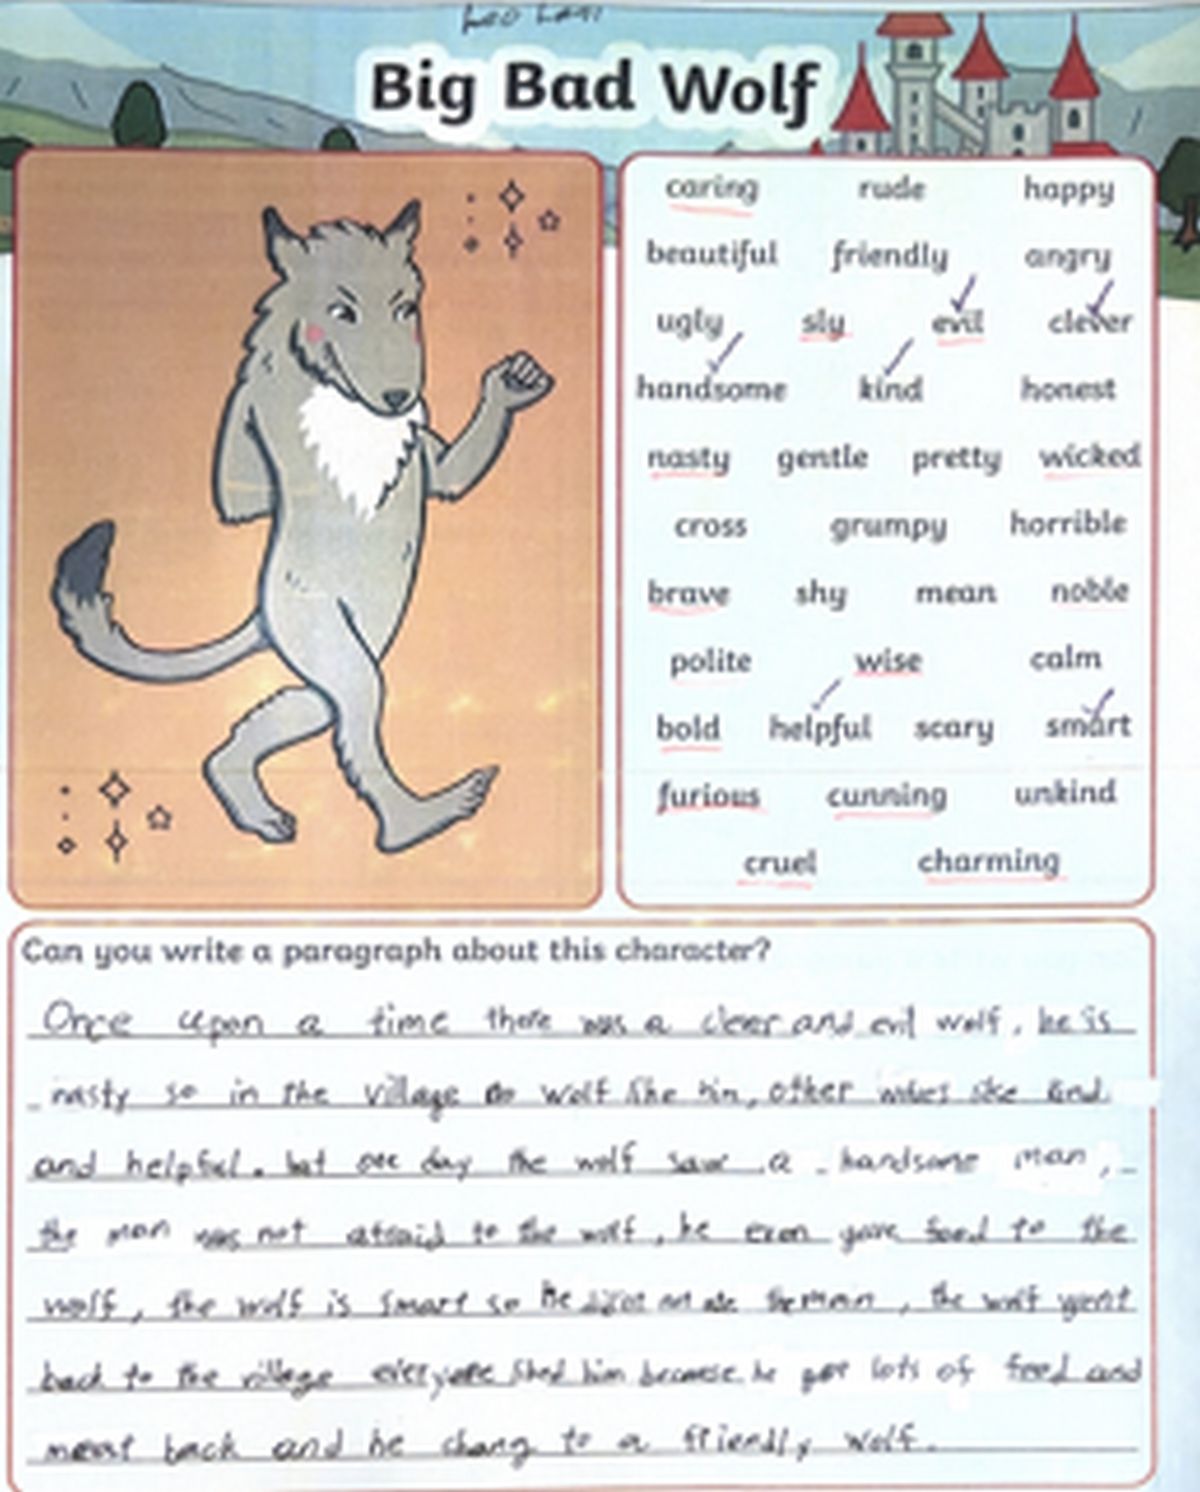 Big Bad Wolf
caring rude happy
beautiful friendly angry
ugly sly evil clever
handsome kind honest
nasty gentle pretty wicked
cross grumpy horrible
brave shy mean noble
polite wise calm
bold helpful scary smart
furious cunning unkind
cruel charming
Can you write a paragraph about this character?
Once upon a time there was a clever and evil wolf, he is
nasty so in the village no wolf like him, other wolves like kind
and helpful. but one day the wolf saw a handsome man,
the man was not afraid to the wolf, he even gave food to the
wolf, the wolf is smart so he the man, the wolf went
back to the village everyone liked him because he got lots of food and
meat back and he chang to a friendly wolf.